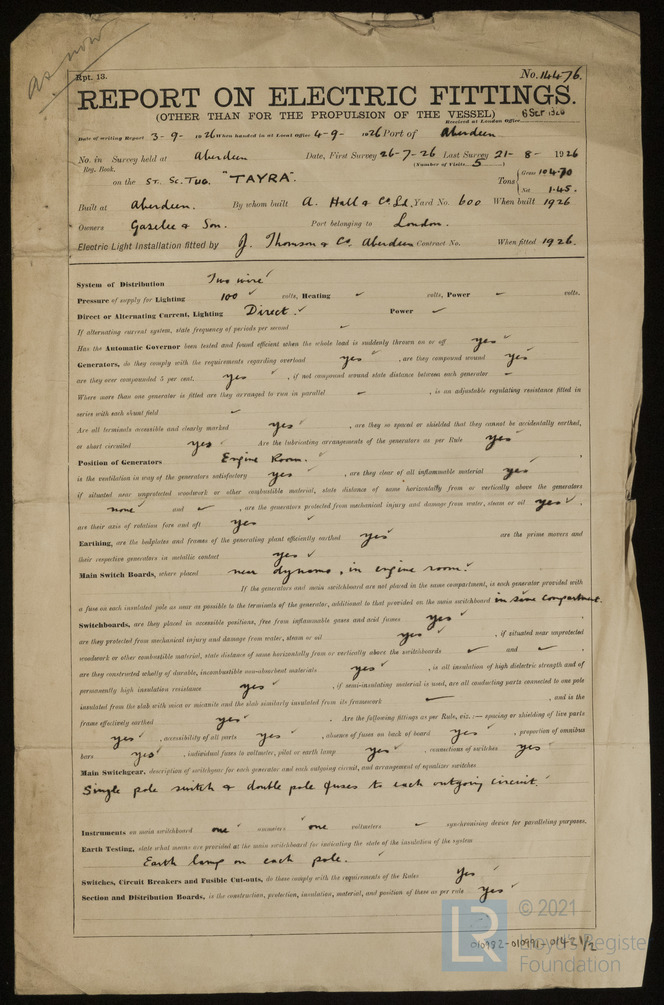 as now
Rpt. 13.
No. 14476.
REPORT ON ELECTRIC FITTINGS.
(OTHER THAN FOR THE PROPULSION OF THE VESSEL)
Received at London Office 6 SEP 1926
Date of writing Report 3-9- 1926 When handed in at Local Office 4-9- 1926 Port of Aberdeen
No. in Survey held at Aberdeen Date, First Survey 26-7-26 Last Survey 21-8-1926
Reg. Book. (Number of Visits 5)
on the St. Sc. Tug. "TAYRA". Tons Gross 104.70
Net 1.45.
Built at Aberdeen. By whom built A. Hall & Co Ld. Yard No. 600 When built 1926
Owners Gazelee & Son. Port belonging to London.
Electric Light Installation fitted by J. Thomson & Co. Aberdeen Contract No. When fitted 1926.
System of Distribution Two wire
Pressure of supply for Lighting 100 volts, Heating volts, Power volts.
Direct or Alternating Current, Lighting Direct. Power
If alternating current system, state frequency of periods per second
Has the Automatic Governor been tested and found efficient when the whole load is suddenly thrown on or off yes
Generators, do they comply with the requirements regarding overload yes, are they compound wound yes
are they over compounded 5 per cent. yes, if not compound wound state distance between each generator
Where more than one generator is fitted are they arranged to run in parallel, is an adjustable regulating resistance fitted in
series with each shunt field
Are all terminals accessible and clearly marked yes, are they so spaced or shielded that they cannot be accidentally earthed,
or short circuited yes Are the lubricating arrangements of the generators as per Rule yes
Position of Generators Engine Room.
is the ventilation in way of the generators satisfactory yes, are they clear of all inflammable material yes
if situated near unprotected woodwork or other combustible material, state distance of same horizontally from or vertically above the generators
none and, are the generators protected from mechanical injury and damage from water, steam or oil yes,
are their axis of rotation fore and aft yes
Earthing, are the bedplates and frames of the generating plant efficiently earthed yes are the prime movers and
their respective generators in metallic contact yes
Main Switch Boards, where placed near dynamo, in engine room.
If the generators and main switchboard are not placed in the same compartment, is each generator provided with
a fuse on each insulated pole as near as possible to the terminals of the generator, additional to that provided on the main switchboard in same compartment.
Switchboards, are they placed in accessible positions, free from inflammable gases and acid fumes yes,
are they protected from mechanical injury and damage from water, steam or oil yes, if situated near unprotected
woodwork or other combustible material, state distance of same horizontally from or vertically above the switchboards and,
are they constructed wholly of durable, incombustible non-absorbent materials yes, is all insulation of high dielectric strength and of
permanently high insulation resistance yes, if semi-insulating material is used, are all conducting parts connected to one pole
insulated from the slab with mica or micanite and the slab similarly insulated from its framework, and is the
frame effectively earthed yes. Are the following fittings as per Rule, viz.:— spacing or shielding of live parts
yes, accessibility of all parts yes, absence of fuses on back of board yes, proportion of omnibus
bars yes, individual fuses to voltmeter, pilot or earth lamp yes, connections of switches yes
Main Switchgear, description of switchgear for each generator and each outgoing circuit, and arrangement of equalizer switches
Single pole switch & double pole fuses to each outgoing circuit.
Instruments on main switchboard one ammeters one voltmeters synchronising device for paralleling purposes.
Earth Testing, state what means are provided at the main switchboard for indicating the state of the insulation of the system
Earth lamp on each pole.
Switches, Circuit Breakers and Fusible Cut-outs, do these comply with the requirements of the Rules yes
Section and Distribution Boards, is the construction, protection, insulation, material, and position of these as per rule yes
LR
© 2021
Lloyd's Register
Foundation
010982-010991-0142 1/2